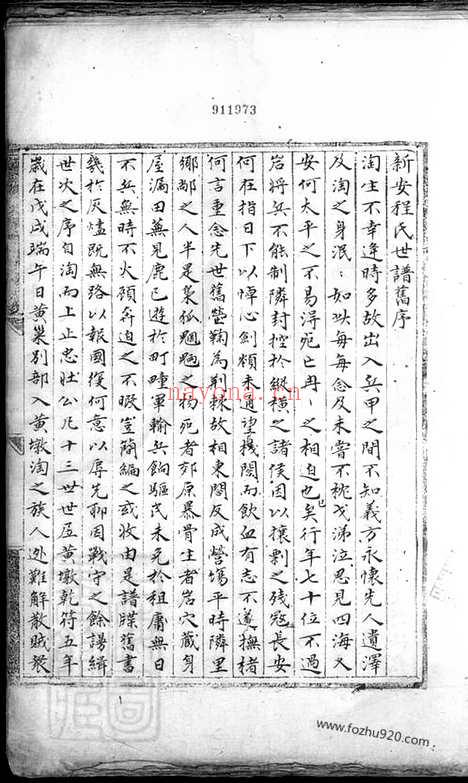 911973
新安程氏世譜舊序
淘生不幸逢時多故出入兵甲之間不知義方永懷先人遺澤
及淘之身泯〻如此每每念及未嘗不枕戈涕泣思見四海久
安何太平之不易得死亡冉〻之相迫也已矣行年七十位不過
岩將兵不能制隣封控於縱橫之諸侯因以攘剽之殘寇長安
何在指日下以悼心劍頻未遇望機閣而飲血有志不遂撫楮
何言重念先世舊塋鞠為荆棘故相東閣反成營塲平時隣里
鄉鄰之人半是梟狐魍魎之物死者郊原暴骨生者岩穴藏身
屋漏田蕪見鹿已遊於町畽軍輸兵餉驅民未死於租庸無日
不兵無時不火顛奔迫之不暇豈簡編之或收由是譜牒舊書
幾於灰燼既無路以報國復何意以辱先聊因戰守之餘謾緝
世次之序自淘而上止忠壯公凡十三世世居黄墩乾符五年
歲在戊戌端午日黄巢别部入黄墩淘之族人逊難解散賊衆
nayona.cn
www.fozhu920.com